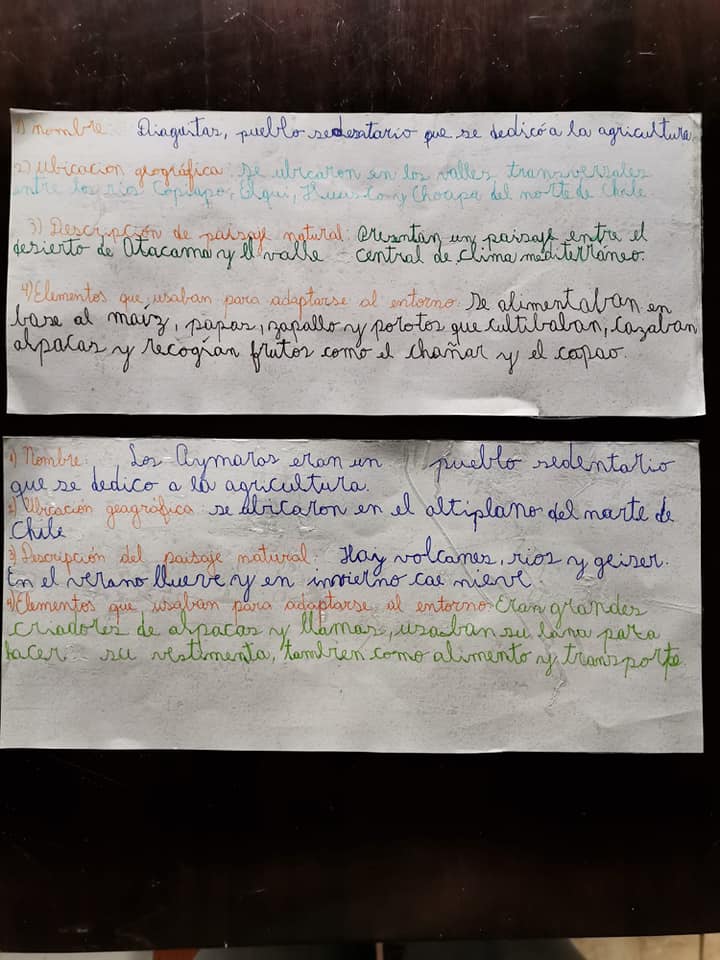 1) nombre: Diaguitas, pueblo sedesatario que se dedicó a la agricultura
2) ubicación geográfica: se ubicaron en los valles transversales
entre los ríos Copiapo, Elqui, Huasco y Choapa del norte de Chile.
3) Descripción de paisaje natural: Presentan un paisaje entre el
desierto de Atacama y el valle central de clima mediterráneo.
4) Elementos que usaban para adaptarse al entorno: Se alimentaban en
base al maiz, papas, zapallo y porotos que cultibaban, cazaban
alpacas y recogían frutos como el chañar y el capao.
1) Nombre: Los Aymaras eran un pueblo sedentario
que se dedico a la agricultura.
2) Ubicación geagráfica: se ubicaron en el altiplano del norte de
Chile
3) Descripción del paisaje natural: Hay volcanes, rios y geiser.
En el verano llueve y en invierno cae nieve.
4) Elementos que usaban para adaptarse al entorno: Eran grandes
criadores de alpacas y llamas, usaban su lana para
hacer su vestimenta, tambien como alimento y transporte.